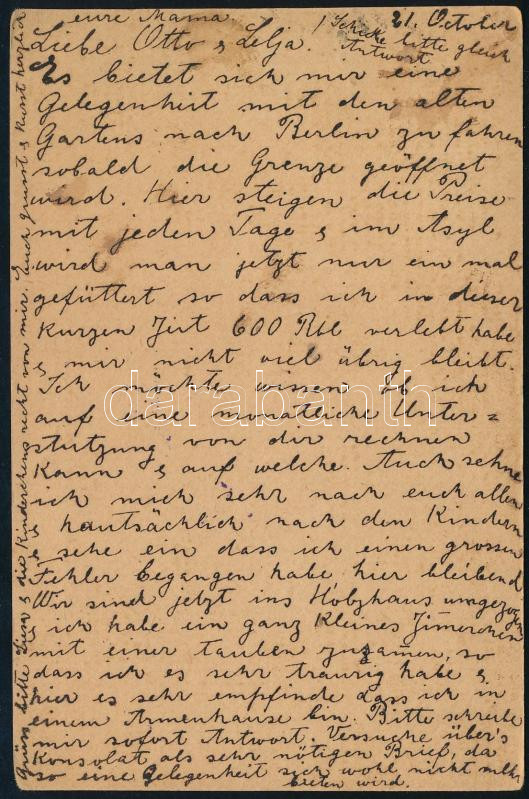 eure Mama.
21. October
! Schicke bitte gleich
Antwort
Liebe Otto & Lelja.
Es bietet sich mir eine
Gelegenheit mit den alten
Gartens nach Berlin zu fahren
sobald die Grenze geöffnet
wird. Hier steigen die Preise
mit jeden Tage & im Asyl
wird man jetzt nur ein mal
gefüttert so dass ich in dieser
kurzen Zeit 600 Rbl verlebt habe
& mir nicht viel übrig bleibt.
Ich möchte wissen ob ich
auf eine monatliche Unter=
stützung von dir rechnen
kann & auf welche. Auch sehne
ich mich sehr nach euch allen
& hautsächlich nach den Kindern
& sehe ein dass ich einen grossen
Fehler begangen habe hier bleibend
Wir sind jetzt ins Holzhaus umgezogen
& ich habe ein ganz kleines Zimerchen
mit einer tauben zusamen, so
dass ich es sehr traurig habe &
hier es sehr empfinde dass ich in
einem Armenhause bin. Bitte schreibe
mir sofort Antwort. Versuche über's
Konsolat als sehr nötigen Brief, da
so eine Gelegenheit sich wohl nicht mehr
bieten wird.
Grüss bitte & die Kinderchens recht von mir. Euch grüsst & küsst herzlich
darabanth